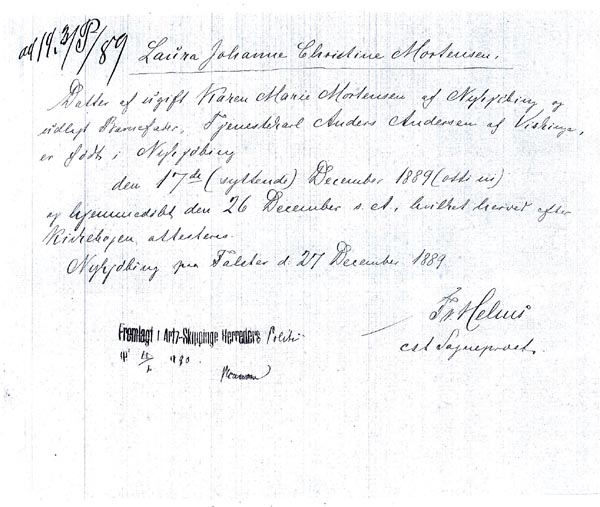 ad 19. 3/P/89
Laura Johanne Christine Mortensen.
Datter af ugift Karen Marie Mortensen af Nykjøbing og
udlagt Barnefader, Tjenestekarl Anders Andersen af Viskinge,
er født i Nykjøbing
den 17de (syttende) December 1889 (otti ni)
og hjemmedøbt den 26 December s. A., hvilket herved efter
Kirkebogen attesteres.
Nykjøbing paa Falster d. 27 December 1889
Fr. Helms
cst Sognepræst.
Fremlagt i Artz-Skippinge Herreders Politi